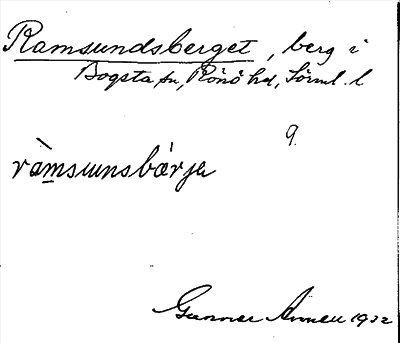 Ramsundsberget, berg i
Bogsta sn, Rönö hd, Sörml. l
9.
ràmsunsbárja
Gunnar Ameen 1922